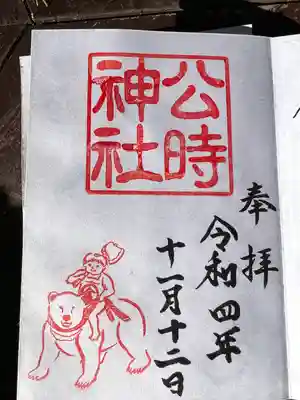 奉拝
令和四年
十一月十二日
公時
神社